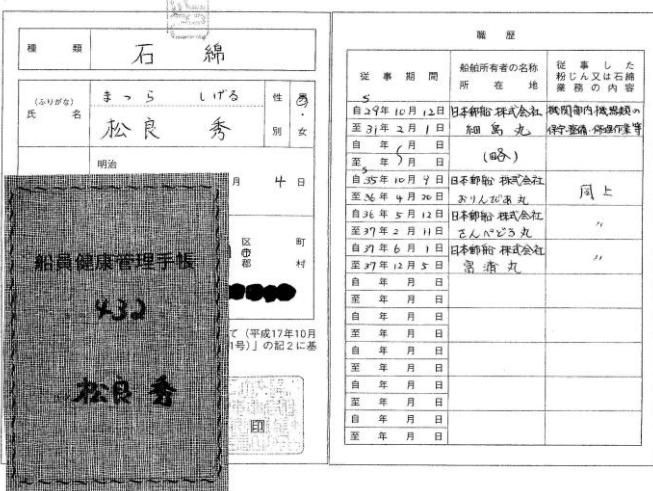 種 類
石 綿
(ふりがな)
まつら しげる
氏 名
松良 秀
性 別
男・女
明治
月 4 日
区 市 郡
町 村
船員健康管理手帳
432
松良 秀
て（平成17年10月
1号）」の記２に基
印
職 歴
従 事 期 間
船舶所有者の名称
所 在 地
従事した
粉じん又は石綿
業務の内容
S
自29年10月12日 日本郵船株式会社 機関部内機器類の
至31年2月1日 細島丸 保守整備・修理作業等
自 年 月 日
至 年 月 日
(略)
S
自35年10月9日 日本郵船株式会社 同上
至36年4月20日 おりんぴあ丸
自36年5月12日 日本郵船株式会社 〃
至37年2月11日 さんぺどろ丸
自37年6月1日 日本郵船株式会社 〃
至37年12月5日
自 年 月 日
至 年 月 日
自 年 月 日
至 年 月 日
自 年 月 日
至 年 月 日
自 年 月 日
至 年 月 日
自 年 月 日
至 年 月 日